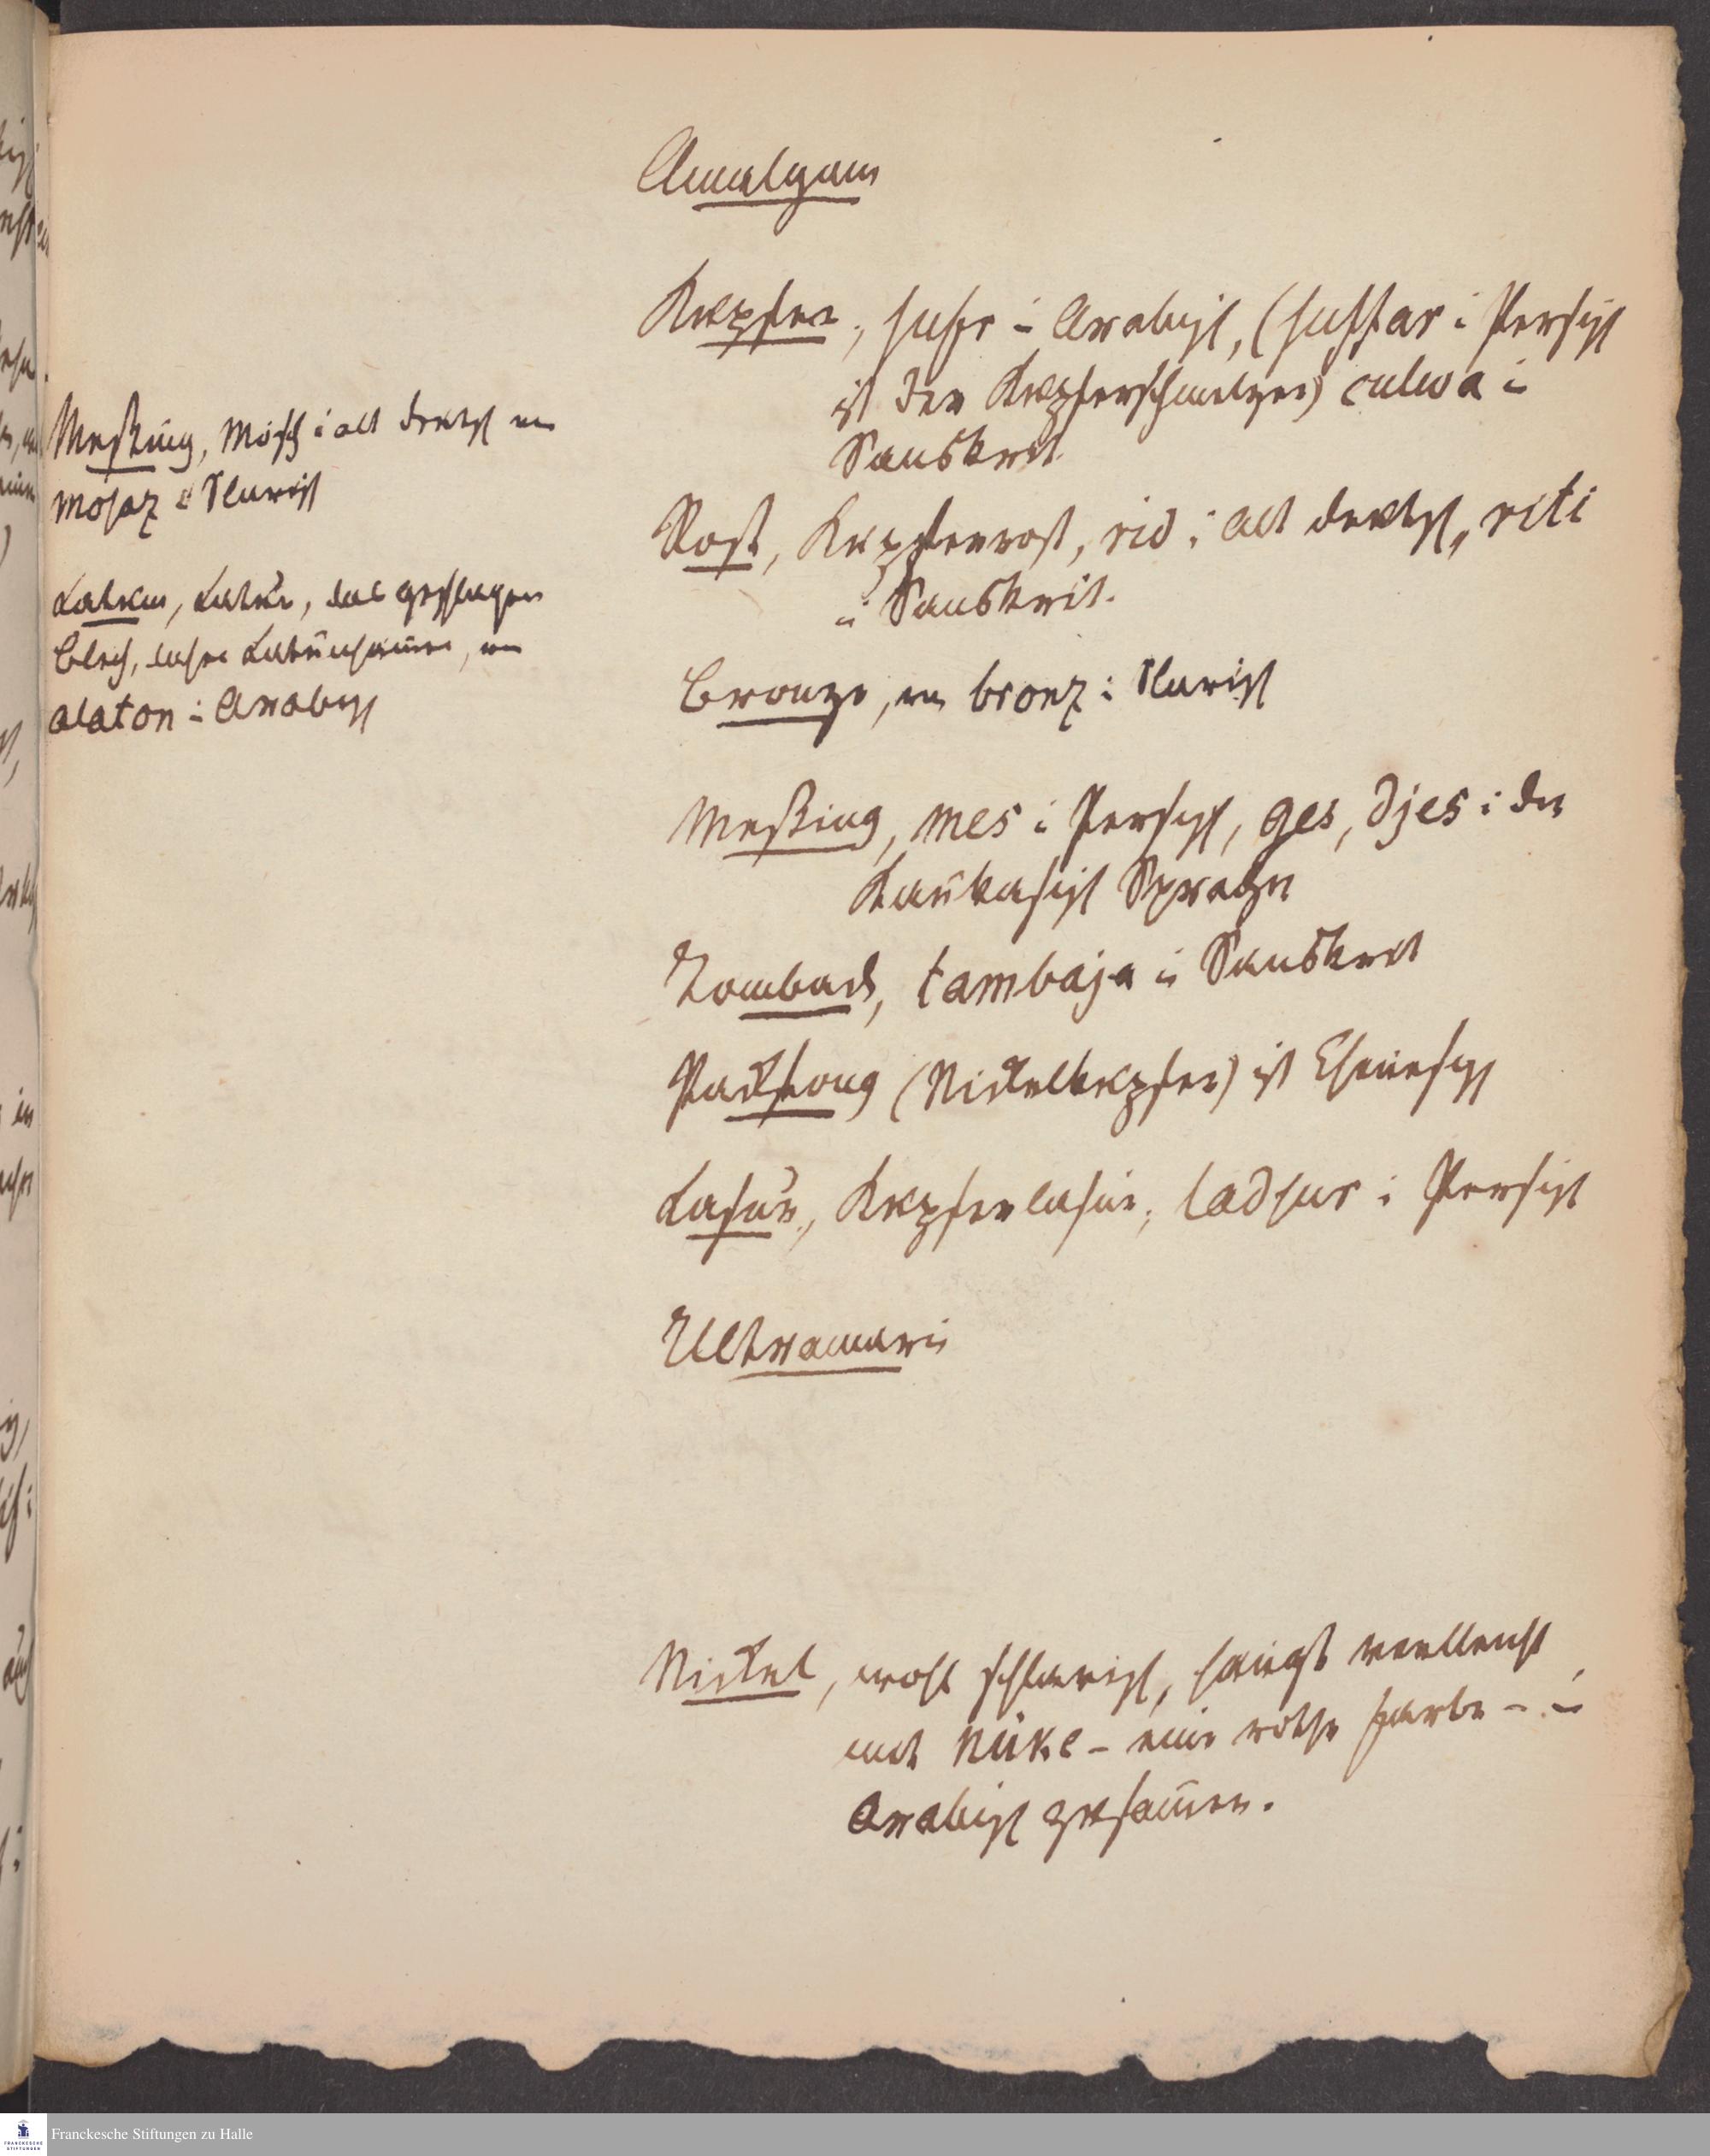 Amalgam
Kupfer, sufr in Arabisch, (suffar in Persisch
ist der Kupferschmelzer) culwa in
Sanskrit
Rost, Kupferrost, rid in alt deutsch, riti
in Sanskrit.
Bronze, en bronz in Slavisch
Meßing, mes in Persisch, ges, djes in den
Kaukasisch Sprachen
Tomback, tambaja in Sanskrit
Packfong (Nickelkupfer) ist Chinesisch
Lasur, Kupferlasur, ladsur in Persisch
Ultramarin
Nickel, wohl schlavisch, hängt vielleicht
mit nüke - eine rothe Farbe - in
Arabisch zusam̄en.
Meßing, Mösch in alt deutsch
mosaz in Slavisch
Latun, Latun, das geschlagen
Blech, daher Latunham̄er,
alaton in Arabisch
Franckesche Stiftungen zu Halle